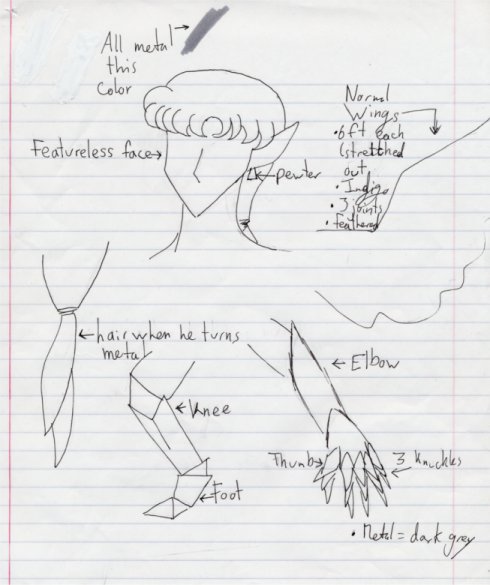 All metal
this
color
Normal
Wings
• 6ft each
(stretched
out
• Indigo
• 3 joints
• Feathered
Featureless face
pewter
hair when he turns
metal
Elbow
Knee
Thumb
3 Knuckles
Foot
• Metal = dark grey